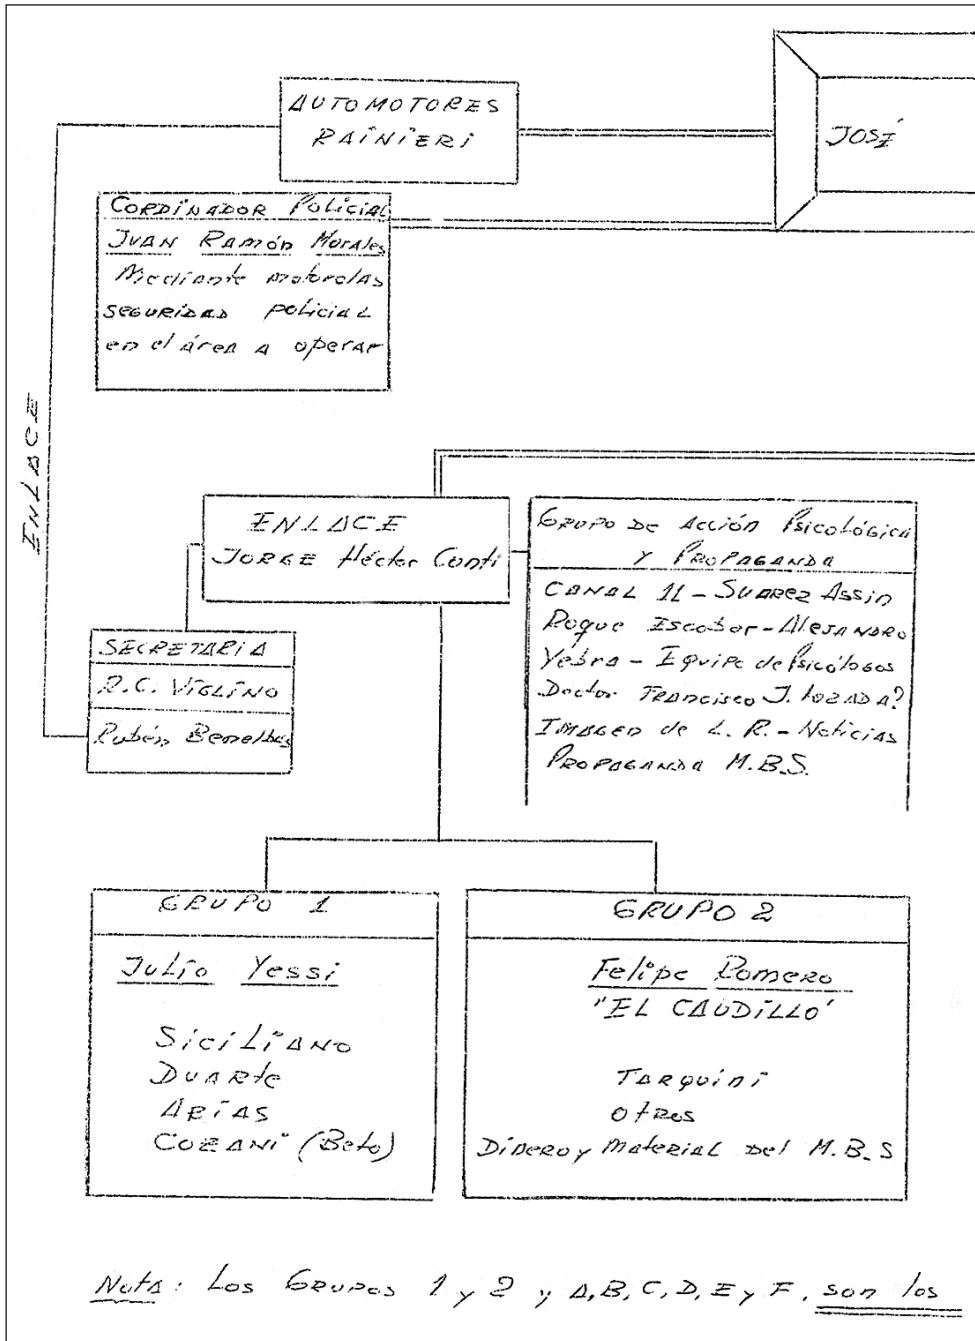 AUTOMOTORES
RAINIERI
JOSÉ
CORDINADOR POLICIAL
JUAN RAMÓN Morales
Mediante motorolas
SEGURIDAD policiaL
en el área a operar
ENLACE
ENLACE
JORGE Héctor Conti
GRUPO DE ACCIÓN PSICOLÓGICA
Y PROPAGANDA
CANAL 11 - SUAREZ Assin
Roque Escobar - ALEJANDRO
Yebra - Equipe de Psicólogos
Doctor FRANCISCO J. LOZADA?
IMAGEN de L. R. - Noticias
PROPAGANDA M.B.S.
SECRETARIA
R.C. VIGLINO
Rubén Benelbas
GRUPO 1
Julio Yessi
SiciLiANO
DUARte
ARiAS
COZANi (Beto)
GRUPO 2
Felipe Romero
"EL CAUDILLO'
TARquini
OtRos
Dinero y MateriaL Del M.B.S
NotA: Los GRupos 1 y 2 y A, B, C, D, E y F, son los